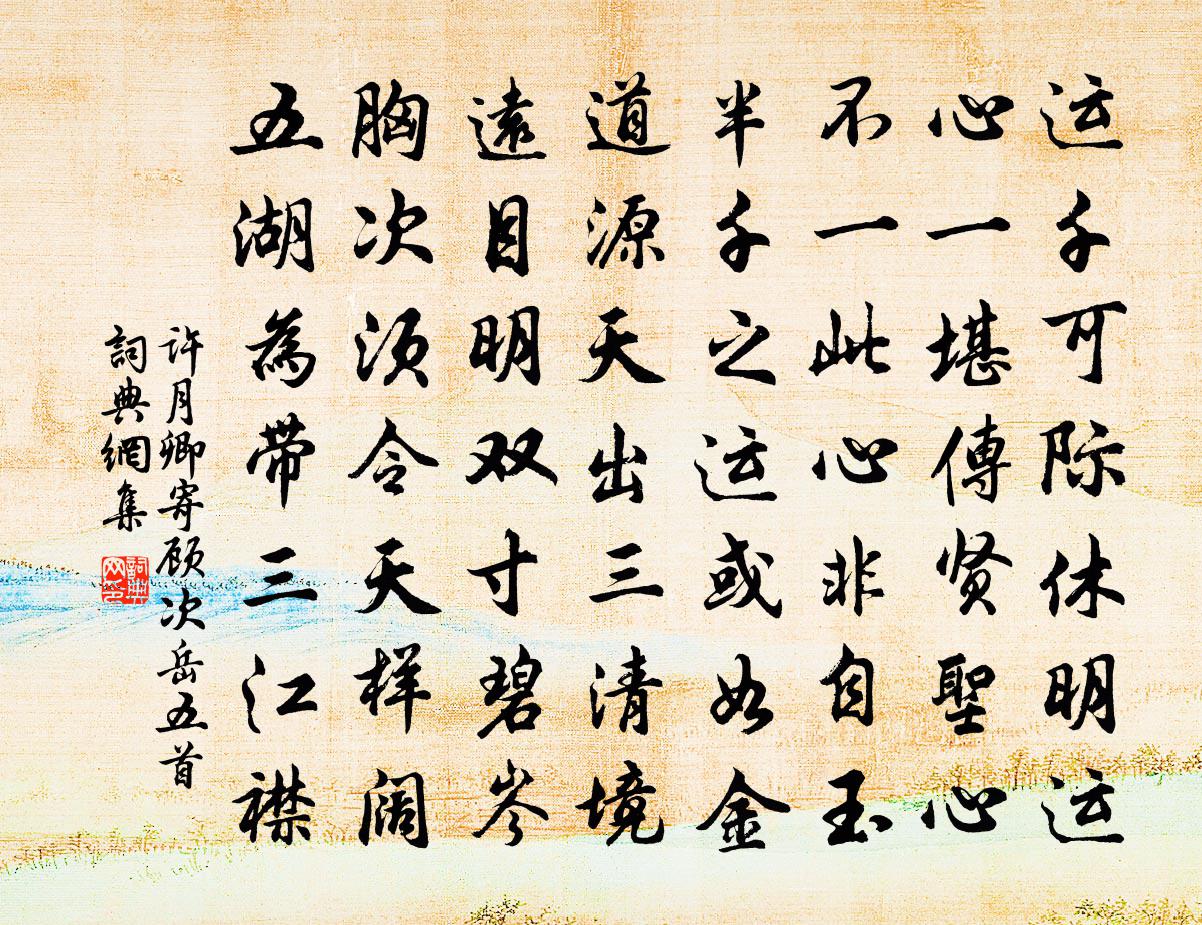 运千可际休明运
心一堪傳贤聖心
不一此心非自玉
半千之运或如金
道源天出三清境
遠目明双寸碧岑
胸次须令天样阔
五湖為带三江襟
许月卿寄顾次岳五首
詞典網集